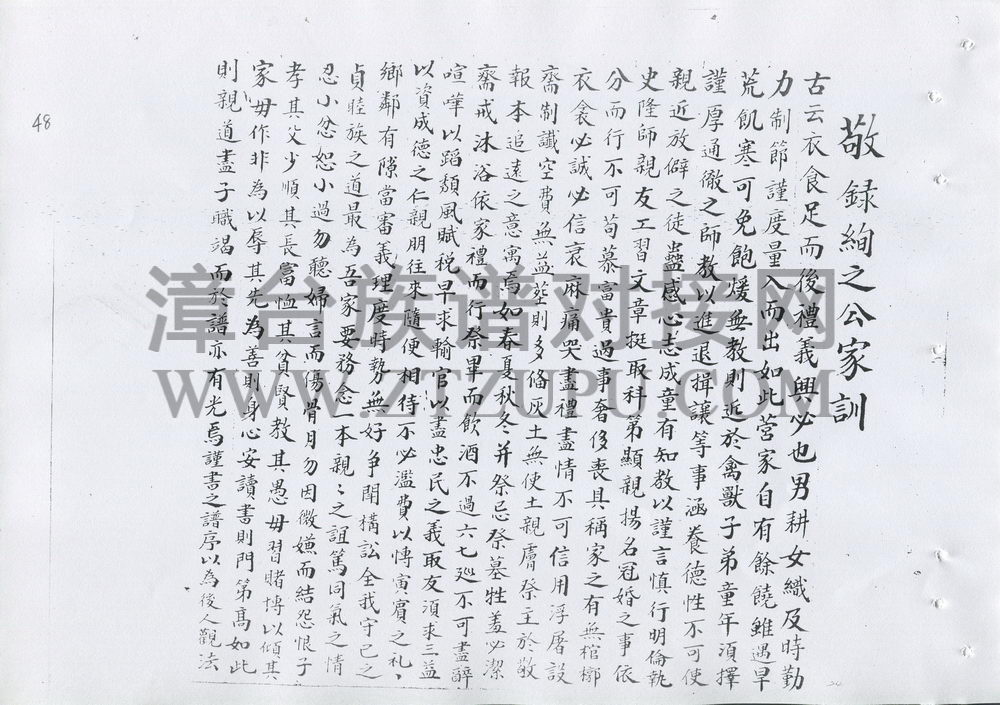 敬録絢之公家訓
古云衣食足而後禮義興必也男耕女織及時勤
力制節謹度量入而出如此营家自有餘饒雖遇旱
荒飢寒可免飽煖無教則近於禽獸子弟童年須擇
謹厚通徹之師教以進退揖讓等事涵養德性不可使
親近放僻之徒蠱惑心志成童有知教以謹言慎行明倫執
史隆師親友工習文章挺取科第顯親揚名冠婚之事依
分而行不可苟慕富貴過事奢侈喪具稱家之有無棺槨
衣衾必誠必信衰麻痛哭盡禮盡情不可信用浮屠設
齋制讖空費無益塟則多俻灰土無使土親膚祭主於敬
報本追遠之意寓焉如春夏秋冬并祭忌祭墓牲羞必潔
齋戒沐浴依家禮而行祭畢而飲酒不過六七廵不可盡辭
喧嘩以蹈頽風賦税早求輸官以盡忠民之義取友須求三益
以資成德之仁親朋往來隨便相待不必濫費以慱寅賓之礼、
鄉鄰有隙當審義理度時勢無好争閗構訟全我守己之
貞睦族之道最為吾家要務念一本親ミ之誼篤同氣之情
忍小忿恕小過勿聽婦言而傷骨月勿因微嫌而結怨恨子
孝其父少順其長富恤其貧賢教其愚毋習賭博以傾其
家毋作非為以辱其先為善則身心安讀書則門第髙如此
則親道盡子職竭而於譜亦有光焉謹書之譜序以為後人觀法
48
漳台族谱对接网
WWW.ZTZUPU.COM